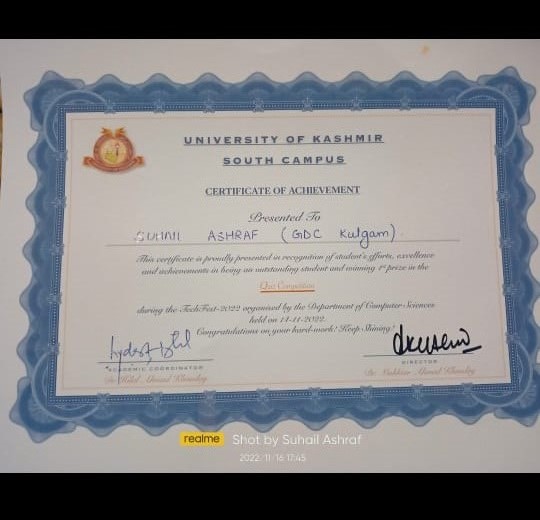 UNIVERSITY OF KASHMIR
SOUTH CAMPUS
CERTIFICATE OF ACHIEVEMENT
Presented To
SUHAIL ASHRAF (GDC Kulgam)
This certificate is proudly presented in recognition of student's efforts, excellence
and achievements in being an outstanding student and winning 1st prize in the
Quiz Competition
during the TechFest-2022 organised by the Department of Computer Sciences
held on 14-11-2022.
Congratulations on your hard-work! Keep Shining!
ACADEMIC COORDINATOR
Dr. Hilal Ahmad Khanday
DIRECTOR
Dr. Ahmad Khanday
realme Shot by Suhail Ashraf
2022/11/16 17:45